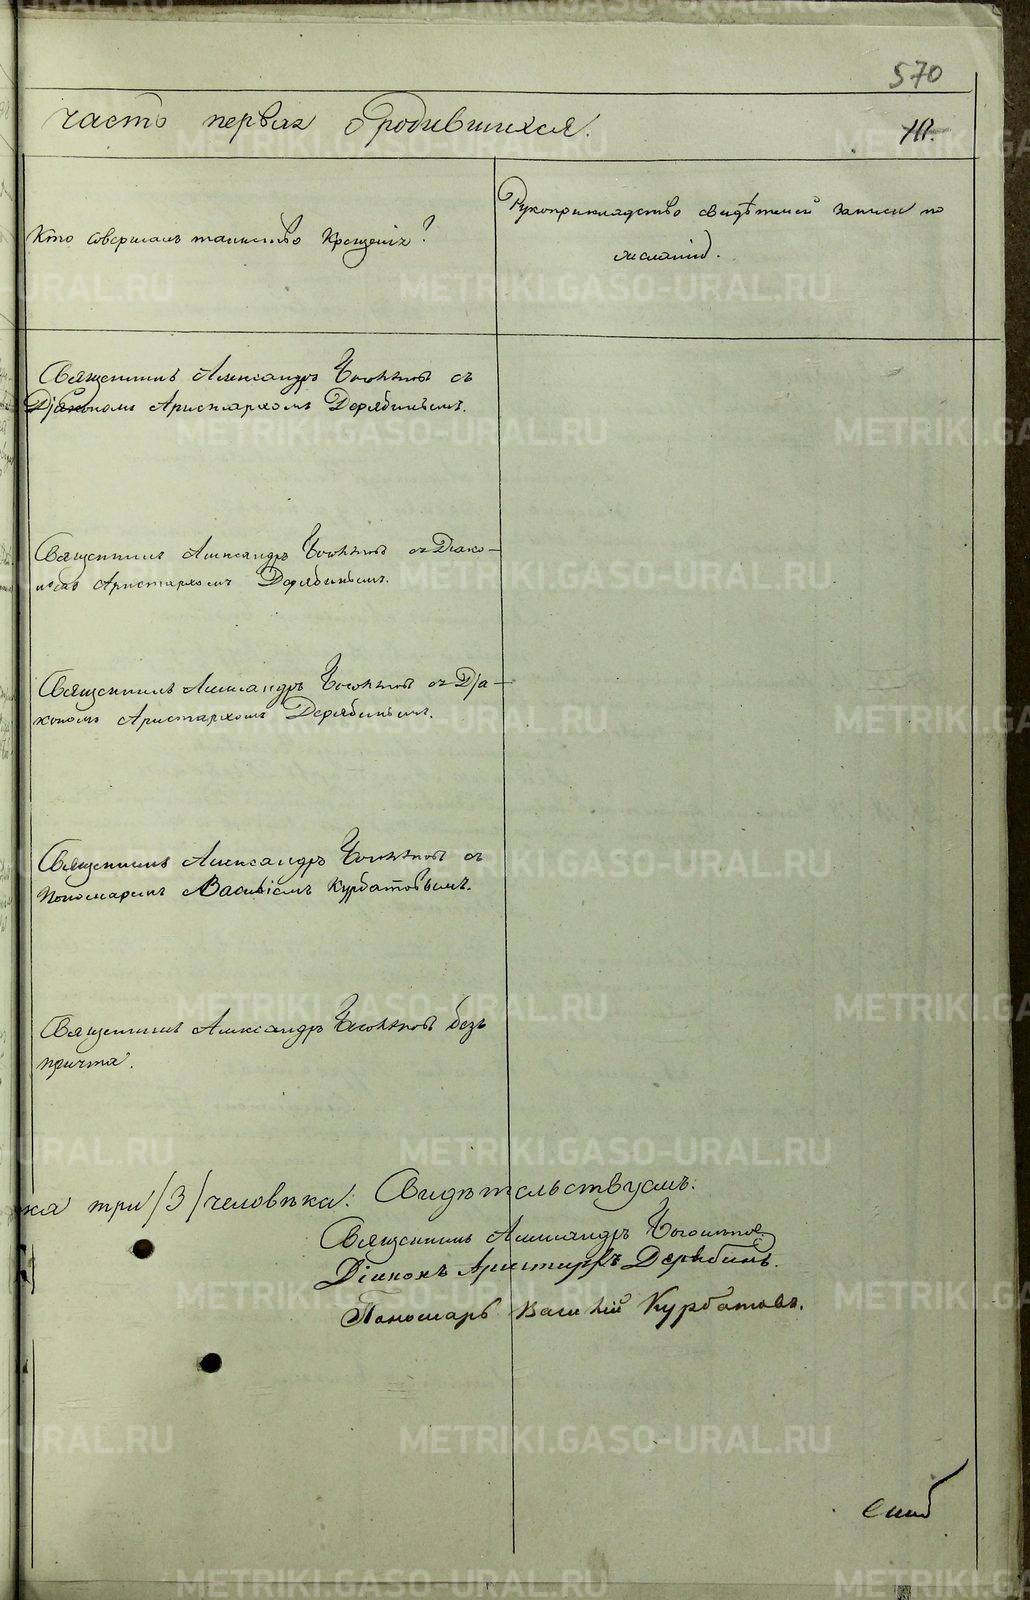 570
часть первая о родившихся.
Кто совершалъ таинство Крещенія?
Рукоприкладство свидѣтелей записи по
желанію.
Священникъ Александръ съ
Діакономъ Аристархомъ Дерябинымъ.
Священникъ Александръ съ Діако-
номъ Аристархомъ Дерябинымъ.
Священникъ Александръ съ Діа-
кономъ Аристархомъ Дерябинымъ.
Священникъ Александръ съ
Пономаремъ Василіемъ Курбатовымъ.
Священникъ Александръ безъ
причта.
ка три /3/ человѣка. Свидѣтельствуемъ:
Священникъ Александръ
Діаконъ Аристархъ Дерябинъ.
Пономарь Василій Курбатовъ.
METRIKI.GASO-URAL.RU